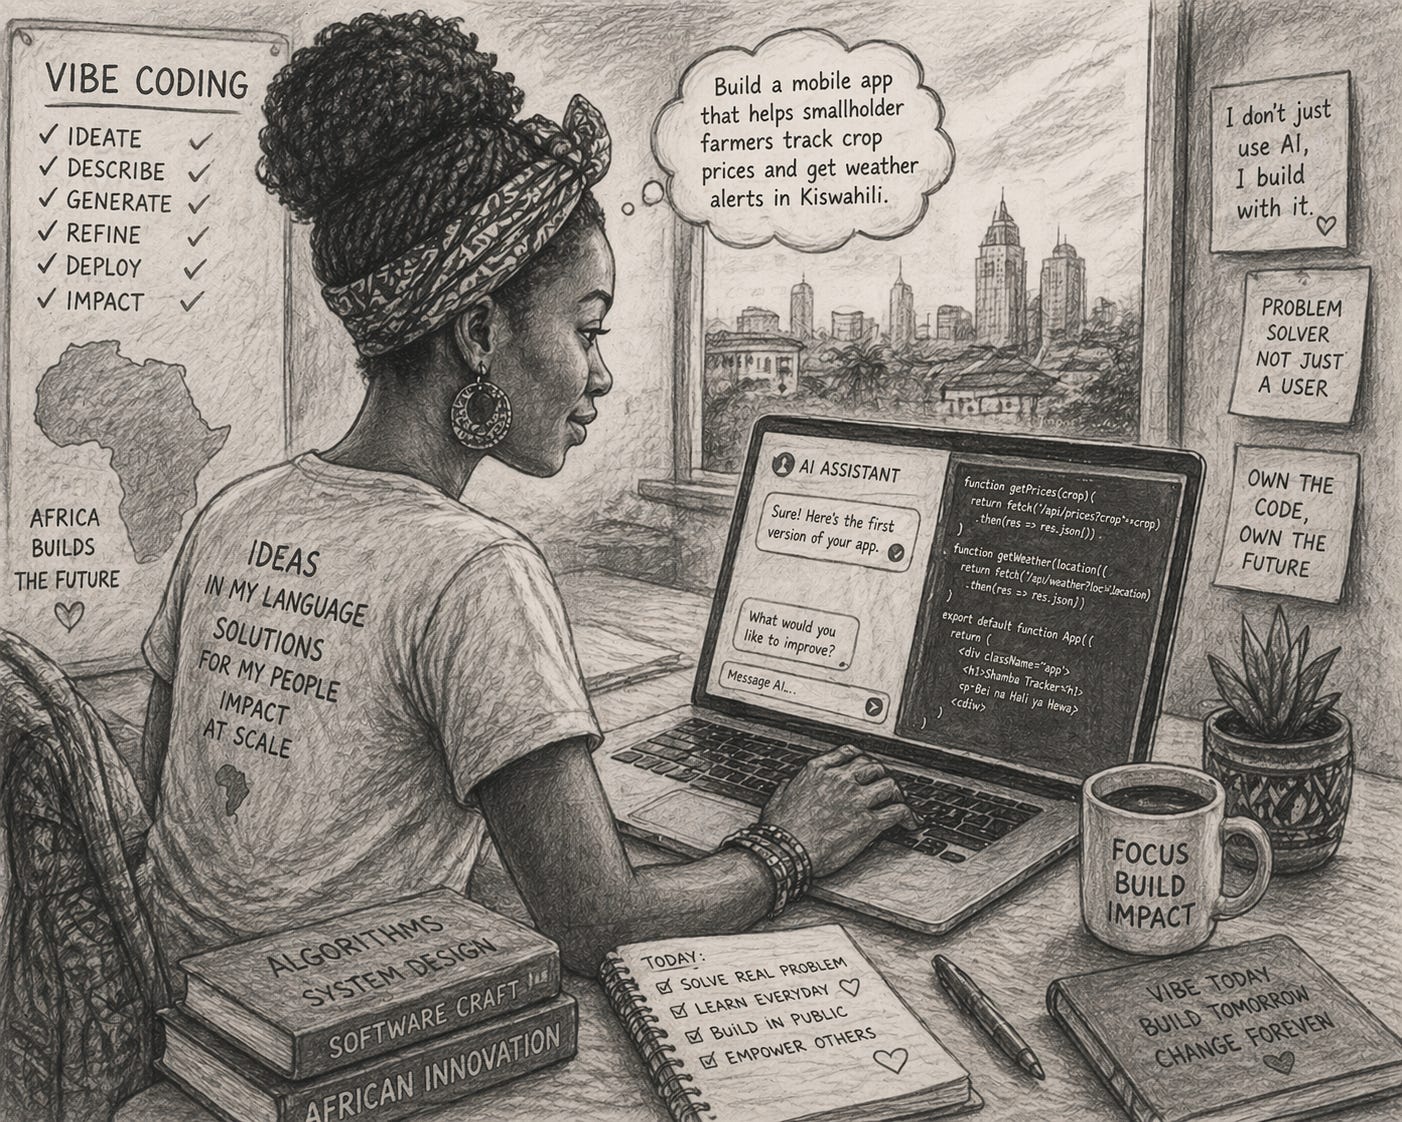 VIBE CODING
✓ IDEATE ✓
✓ DESCRIBE ✓
✓ GENERATE ✓
✓ REFINE ✓
✓ DEPLOY ✓
✓ IMPACT ✓
AFRICA
BUILDS
THE FUTURE
Build a mobile app
that helps smallholder
farmers track crop
prices and get weather
alerts in Kiswahili.
I don't just
use AI,
I build
with it.
PROBLEM
SOLVER
NOT JUST
A USER
OWN THE
CODE,
OWN THE
FUTURE
IDEAS
IN MY LANGUAGE
SOLUTIONS
FOR MY PEOPLE
IMPACT
AT SCALE
AI ASSISTANT
Sure! Here's the first
version of your app.
What would you
like to improve?
Message AI...
function getPrices(crop){
return fetch("/api/prices?crop"+crop)
.then(res => res.json()).
)
function getWeather(location({
return fetch("/api/weather?loc=",location)
.then(res => res.json})
)
export default function App({
return (
<div className="app'>
<h1>Shamba Tracker<h1>
<p>Bei na Hali ya Hewa>
<cdiv>
)
)
FOCUS
BUILD
IMPACT
ALGORITHMS
SYSTEM DESIGN
SOFTWARE CRAFT
AFRICAN INNOVATION
TODAY:
☑ SOLVE REAL PROBLEM
☑ LEARN EVERYDAY
☑ BUILD IN PUBLIC
☑ EMPOWER OTHERS
VIBE TODAY
BUILD TOMORROW
CHANGE FOREVEN